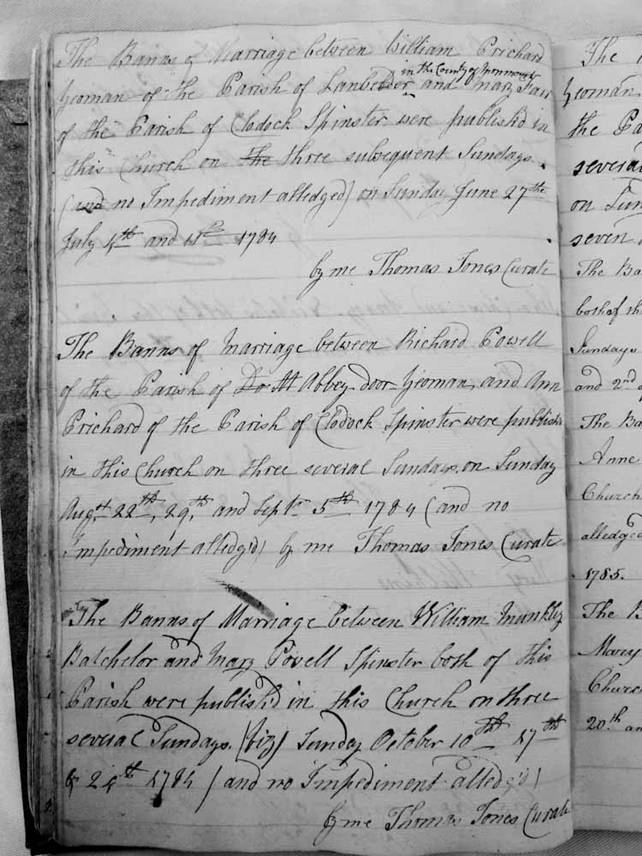 The Banns of Marriage between William Prichard
in the County of Monmouth
Yeoman of the Parish of Lanbeder and Mary Parr
of the Parish of Clodock Spinster were publish'd in
this Church on the three subsequent Sundays.
(and no Impediment alledged) on Sunday June 27th
July 4th and 11th 1784
by me Thomas Jones Curate
The Banns of Marriage between Richard Powell
of the Parish of At Abbey door Yeoman, and Ann
Prichard of the Parish of Clodock Spinster were publish'd
in this Church on three several Sundays, on Sunday
Augst 22th, 29th and Septr 5th 1784 (and no
Impediment alledg'd) by me Thomas Jones Curate
The Banns of Marriage between William Munkley
Batchelor and Mary Powell Spinster both of this
Parish were publish'd in this Church on three
several Sundays. (viz) Sunday October 10th 17th
& 24th 1784 (and no Impediment alledg'd)
by me Thomas Jones Curate
The
Yeoman
the Pa
several
on Sun
seven
The Ba
both of th
Sundays
and 2nd
The Ba
Anne
Church
alledged
1785.
The B
Mary
Church
20th an